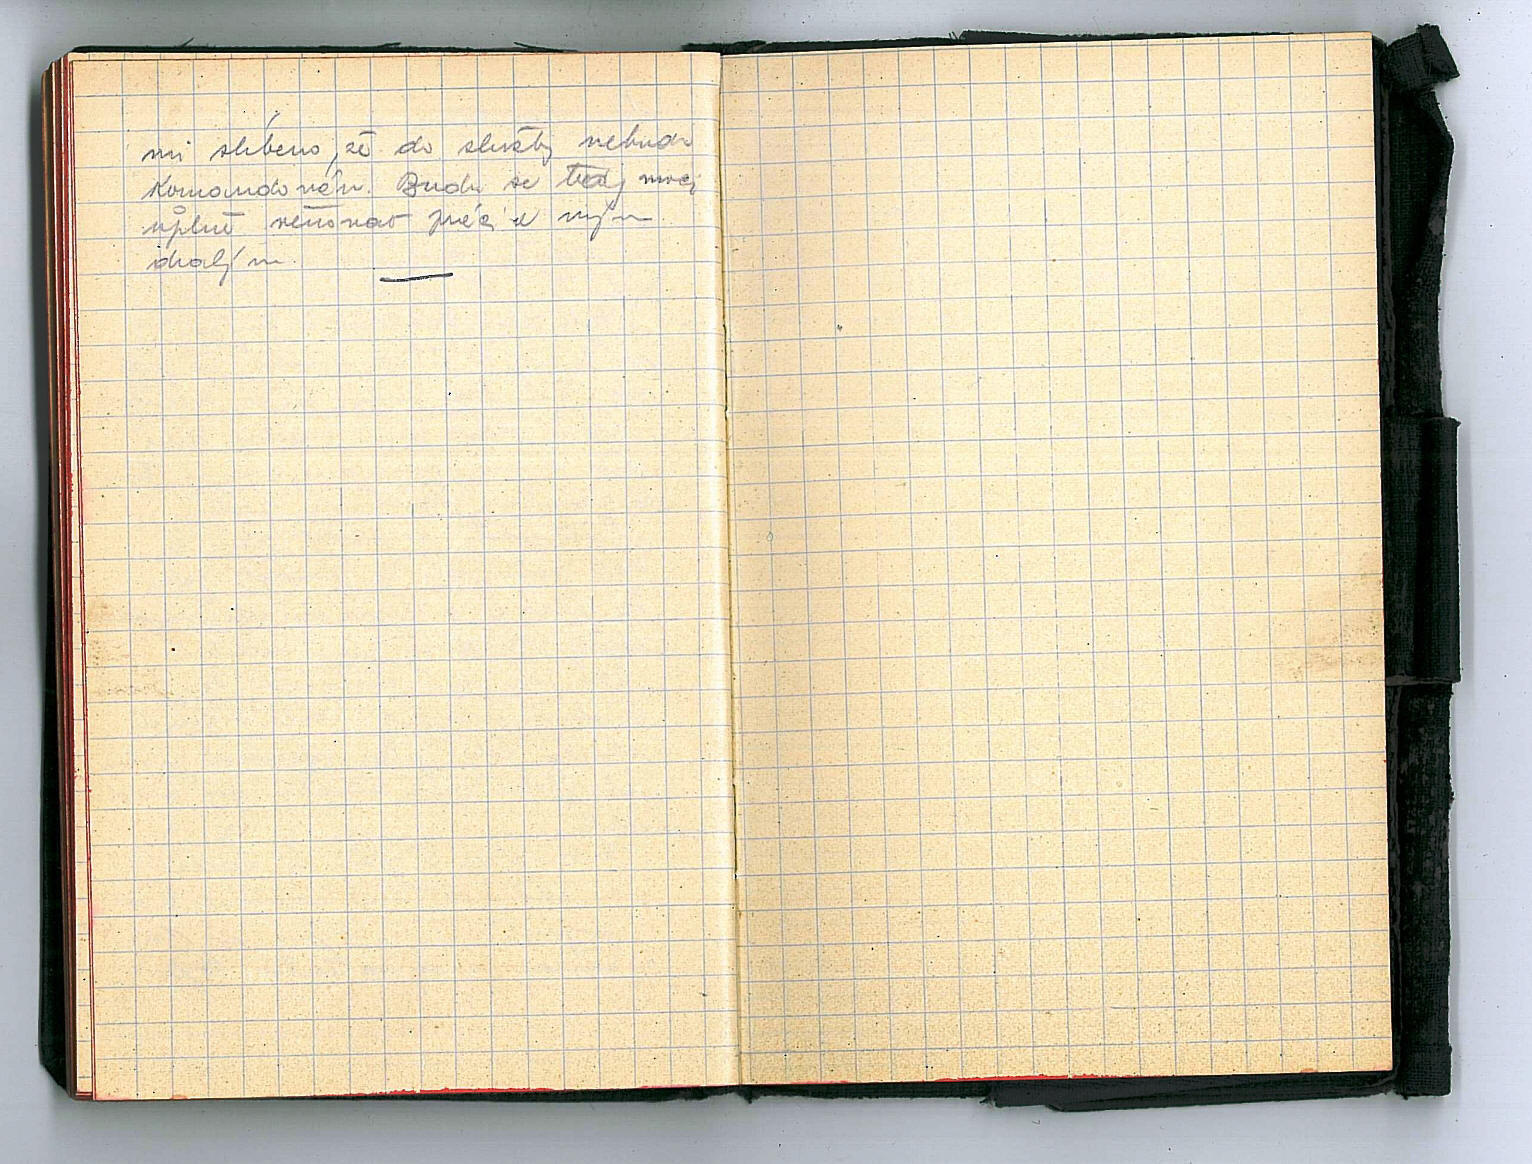 mi slíbeno, že do služby nebudu
komandován. Budu se tedy moci
úplně věnovat práci a mým
ideálům.